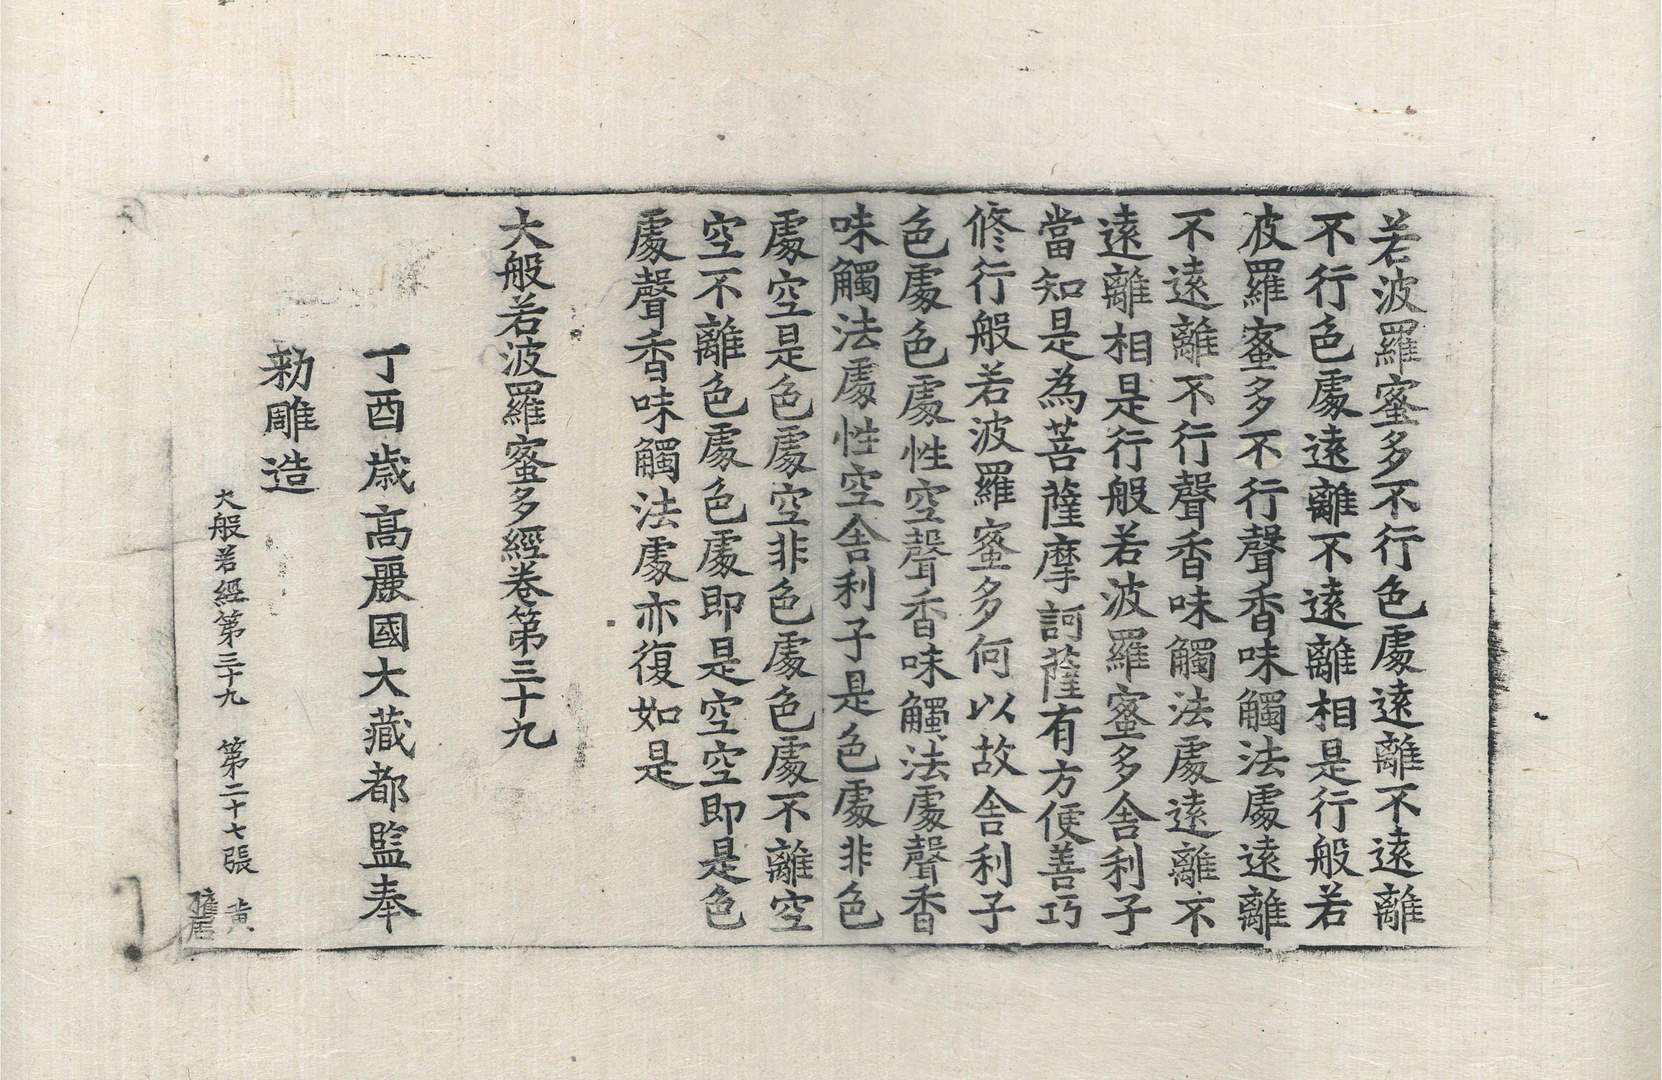 若波羅蜜多不行色處遠離不遠離
不行色處遠離不遠離相是行般若
波羅蜜多不行聲香味觸法處遠離
不遠離不行聲香味觸法處遠離不
遠離相是行般若波羅蜜多舍利子
當知是為菩薩摩訶薩有方便善巧
修行般若波羅蜜多何以故舍利子
色處色處性空聲香味觸法處聲香
味觸法處性空舍利子是色處非色
處空是色處空非色處色處不離空
空不離色處色處即是空空即是色
處聲香味觸法處亦復如是
大般若波羅蜜多經卷第三十九
丁酉歲高麗國大藏都監奉
勅雕造
大般若經第三十九 第二十七張 黄